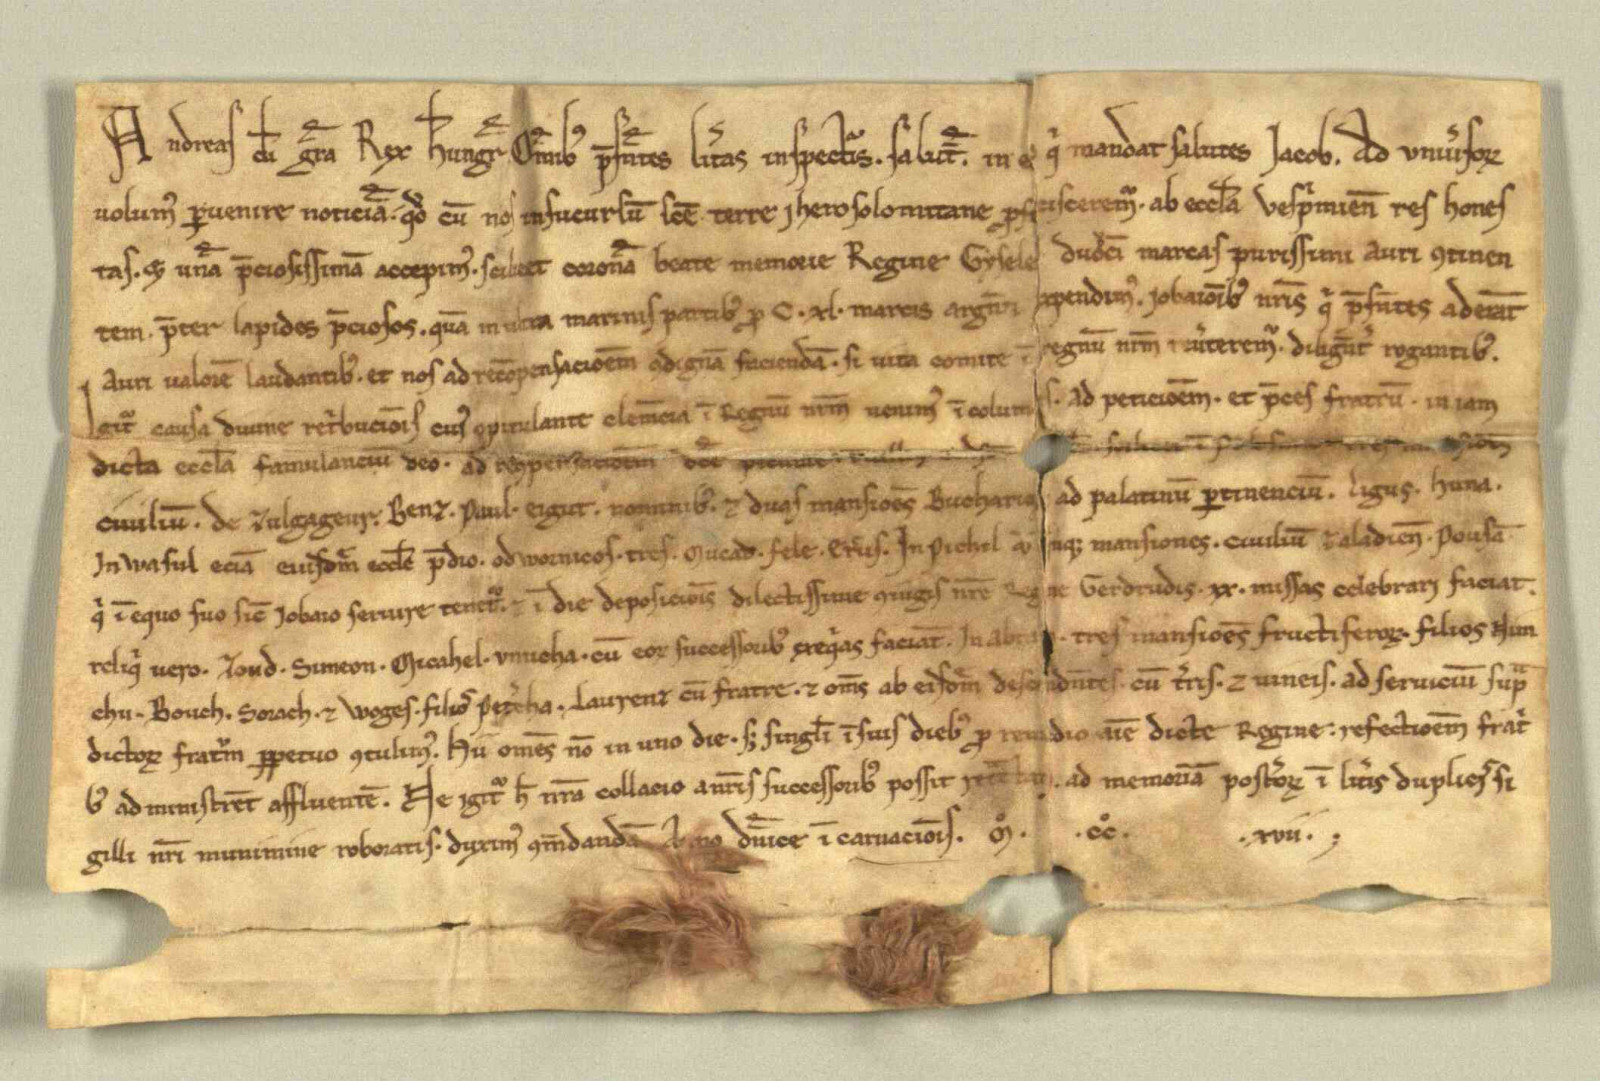 Andreas dei gr̄a Rex hungr̄. Om̄ib; p̄sentes lr̄as inspectur̄is. salut̄. in eo q̄i mandat salutes Jacob. Ad vniu̓sorꝝ
uolum̓ ꝑuenire noticiā. qd̓ cū nos in sucursū sc̄e terre jherosolomitane ꝓficiscerem̓. ab eccl̄a vesp̓mien̄ res hones
tas. ⁊ unā p̄ciosissimā accepim̓. scilicet coronā beate memorie Regine Gysele duod̓cī marcas purissimi auri ꝯtinen
tem. p̄ter lapides p̄ciosos. quā in ultra marinis partib; ꝓ C. xl. marcis argn̄ti expendim̓. jobaiōib; nr̄is q̓ p̄sn̄tes aderāt
auri ualorē laudantib;. et nos ad recōpensacioēm ꝯdignā faciendā. si uita comite ī regnū nr̄m reūterem̓. diligēt̓ rogantib;.
Igit̓ causa diuine ret̓buciōis cui̓ ꝯpitulante clemēcia ī Regnū nr̄m uenim̓ īcolumis. ad peticioēm. et p̄ces fratrū. in iam
dicta eccl̄a famulanciū deo. ad recōpensacioēm
ciuiliū. de Zulgageur. Benz. Paul. eigut. nominib;. ⁊ duas mansioēs Bucharios ad palatinū ꝑtinenciū. ligus. huna.
In wasul eciā eiusdm̄ eccl̄e p̄dio. odwornicos. tres. Mucad. fele. Er̄us. In Pichel quinq; mansiones. ciuiliū zaladien̄. Pousā
q̓ ī equo suo sic̄ jobaio seruire tenet̓. ⁊ ī die deposiciōis dilectissime ꝯiugis nr̄e Regine Gerdrudis. xx. missas celebrari faciat.
reliq̓ uero. Zoud. Simeon. Micahel. vnucha. cū eor̄ successorib; exeq̓as faciāt. In Abraan. tres mansioēs fructiferorꝝ. filios Nun
chu. Bouch. Sorach. ⁊ woges. filiōs Per̓cha. Laurenz cū fratre. ⁊ om̄s ab eisdm̄ descendn̄tes. cū t̓ris. ⁊ uineis. ad seruiciū sup̄
dictorꝝ fratrū ꝑpetuo ꝯtulim̓. Hii omēs nō in uno die. s; singl̓i ī suis dieb; ꝓ remedio aīe dicte Regine. refectioēm frat̓
b; administrēt affluentē. Ne igit̓ h̄ nr̄a collacio a nr̄is successorib; possit retractari. ad memoriā post̓orꝝ ī lr̄is duplicis si
gilli nr̄i munimine roboratis. duxim̓ ꝯm̄dandā. Anno dn̄ice īcarnaciōis. M̊. C̊C̊. xvii.